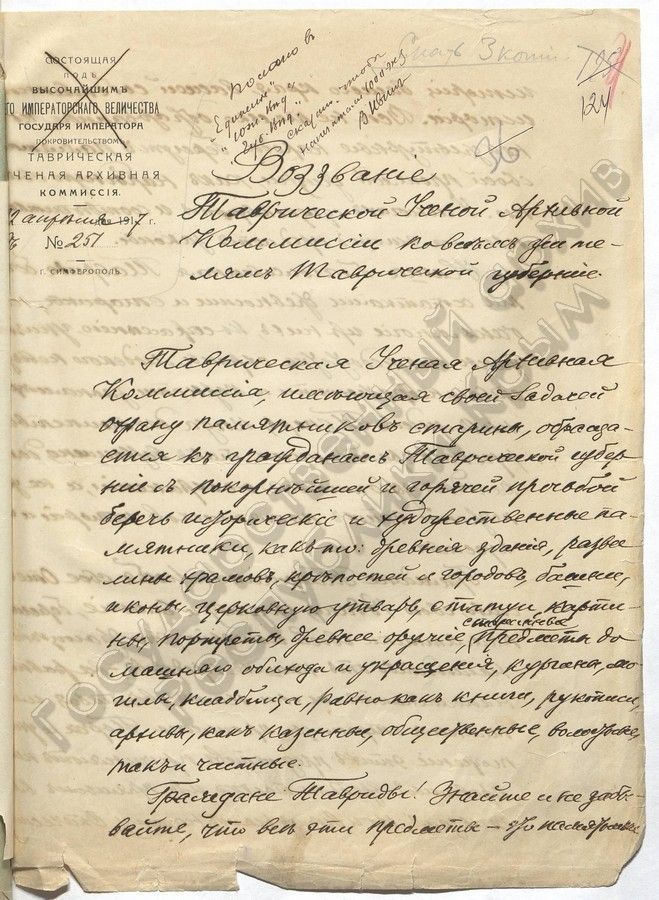 СОСТОЯЩАЯ
ПОДЪ
ВЫСОЧАЙШИМЪ
ГО ИМПЕРАТОРСКАГО ВЕЛИЧЕСТВА
ГОСУДАРЯ ИМПЕРАТОРА
ПОКРОВИТЕЛЬСТВОМЪ
ТАВРИЧЕСКАЯ
ЧЕНАЯ АРХИВНАЯ
КОММИССІЯ.
2 апрѣля 1917 г.
№ 251
Г. СИМФЕРОПОЛЬ.
Послано в
Снять 3 копіи
124
36
Воззваніе
Таврической Ученой Архивной
Коммиссіи ко всѣмъ жителямъ Таврической губерніи.
Таврическая Ученая Архивная
Коммиссія, имѣющая своей задачей
охрану памятниковъ старины, обраща-
ется къ гражданамъ Таврической губер
ніи съ покорнѣйшей и горячей просьбой
беречь историческіе и художественные па-
мятники, какъ то: древнія зданія, развa
лины храмовъ, крѣпостей и городовъ, башни,
иконы, церковную утварь, статуи, карти-
ны, портреты, древнее оружіе, старинные предметы до
машняго обихода и украшенія, курганы, мо-
гилы, кладбища, равно какъ книги, рукописи,
архивы, какъ казенные, общественные, волостные,
такъ и частные.
Граждане Тавриды! Знайте и не забы-
вайте, что всѣ эти предметы – это памятники
Государственный архив
Республики Крым